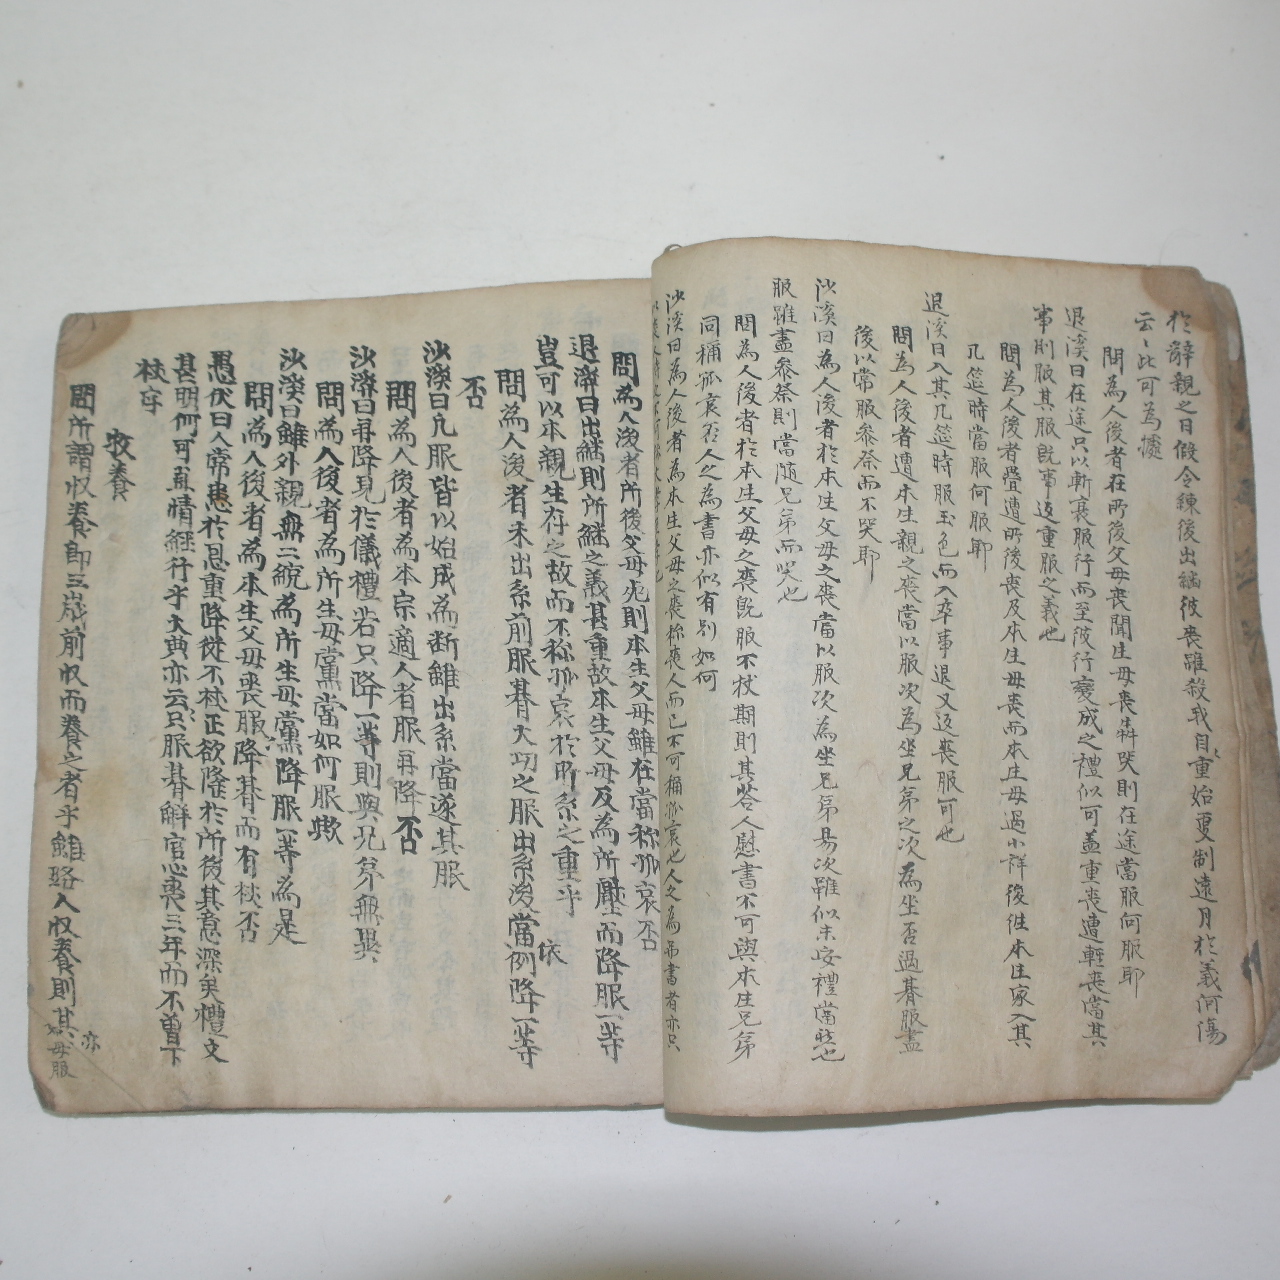 於辭親之日假令練後出繼彼喪雖殺我自重始更制遠月於義何傷
云〻比可為據
問為人後者在所後父母喪聞生母喪犇哭則在途當服何服耶
退溪曰在途只以斬衰服行而至彼行變成之禮似可盖重喪遭輕喪當其
事則服其服旣事返重服之義也
問為人後者疊遭所後喪及本生母喪而本庄母過小祥後徃本生家入其
几筵時當服何服耶
退溪曰入其几筵時服玉色而入卒事退又返喪服可也
問為人後者遭本生親之喪當以服次為坐兄第之次為坐否過朞服盡
後以常服參祭而不哭耶
沙溪曰為人後者於本生父母之喪當以服次為坐兄第易次雖似未安禮當然也
服雖盡參祭則當隨兄弟而哭也
問為人後者於本生父母之喪旣服不杖期則其答人慰書不可與本生兄弟
同稱孤哀否人之為書亦似有別如何
沙溪曰為人後者為本生父母之喪称喪人而已不可稱孤哀也人之為吊書者亦只
問為人後者所後父母死則本生父母雖在當称孤哀否
退溪曰出継則所継之義甚重故本生父母反為所壓而降服一等
豈可以本親生存之故而不称孤哀於所系之重乎
問為人後者未出系前服朞大功之服出系後當依例降一等
否
沙溪曰凡服皆以始成為断雖出系當遂其服
問為人後者為本宗適人者服再降否
沙溪曰再降見於儀禮若只降一等則與兄弟無異
問為人後者為所生母黨當如何服歟
沙溪曰雖外親無二統為所生母黨降服一等為是
問為人後者為本生父母喪服降朞而有杖否
愚伏曰人常患於恩重降從不杖正欲隆於所後其意深矣禮文
甚明何可直情經行乎大典亦云只服朞解官心喪三年而不曽下
杖字
收養
問所謂收養即三歲前收而養之者乎雖路人收養則其亦
母服